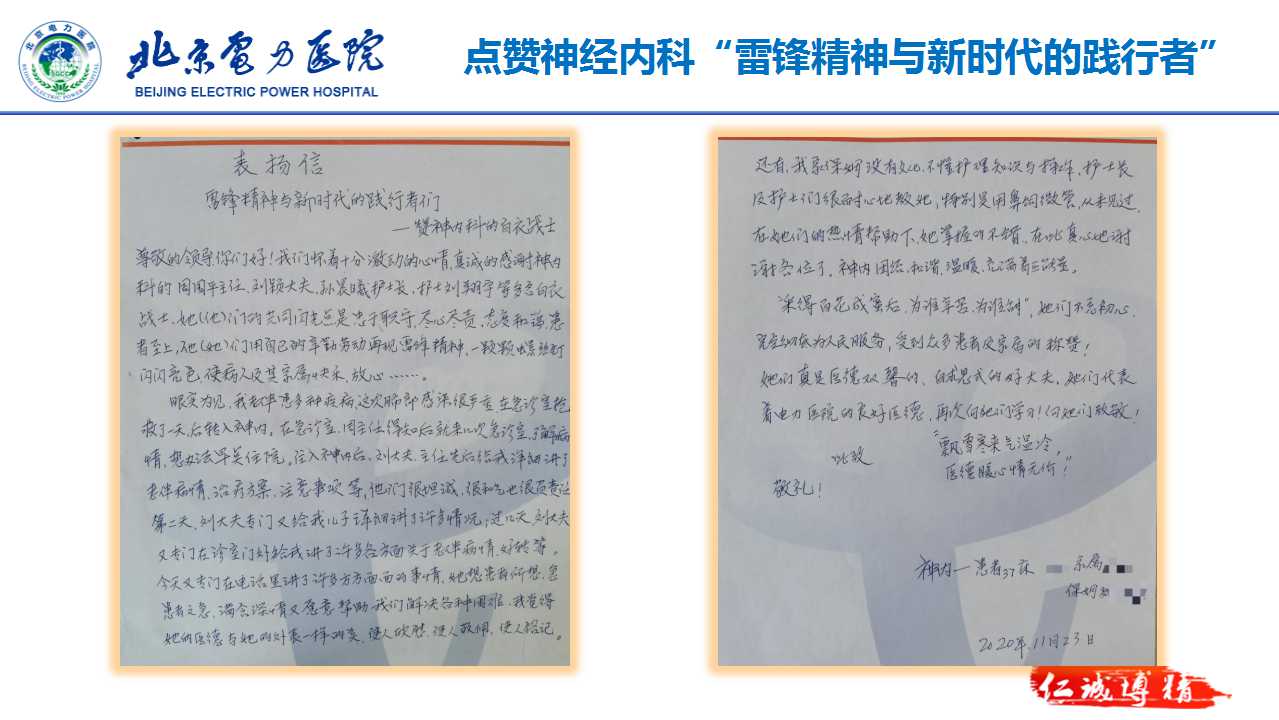 北京电力医院
SGCC
BEIJING ELECTRIC POWER HOSPITAL
北京電力医院
BEIJING ELECTRIC POWER HOSPITAL
点赞神经内科“雷锋精神与新时代的践行者”
表扬信
雷锋精神与新时代的践行者们
—赞神内科的白衣战士
尊敬的领导,你们好!我们怀着十分激动的心情,真诚的感谢神内
科的周国平主任、刘颖大夫、孙晨曦护士长、护士刘翔宇等多名白衣
战士,她(他)们的共同闪光点是忠于职守,尽心尽责,态度和谐,患
者至上,他(她)们用自己的辛勤劳动再现雷锋精神,一颗颗螺丝钉
闪闪亮色,使病人及其家属快乐,放心……。
眼实为见,我老伴患多种疾病,这次肺部感染很严重在急诊室抢
救了一天后转入神内。在急诊室,周主任得知后就来几次急诊室,了解病
情,想办法早关住院。住入神内后,刘大夫、主任先后给我详细讲了
老伴病情、治疗方案、注意事项等,他们很坦诚,很和气也很负责任
第二天,刘大夫专门又给我儿子详细讲了许多情况;过几天,刘大夫
又专门在诊室门好给我讲了许多各方面关于老伴病情、好转等。
今天又专门在电话里讲了许多方方面面的事情,她想患者所想,急
患者之急,满含深情又愿意帮助我们解决各种困难,我觉得
她的医德与她的外表一样的美,使人欣慰,使人敬佩,使人铭记。
还有,我家保姆没有文化,不懂护理知识与操作,护士长
及护士们很耐心地教她,特别是用鼻饲微管,从未见过,
在她们的热情帮助下,她掌握的不错,在此真心地谢
谢各位了。神内团结、和谐、温暖、充满着正能量。
“采得百花成蜜后,为谁辛苦,为谁甜”,她们不忘初心,
完完彻底为人民服务,受到众多患者及家属的称赞!
她们真是医德双馨的、白求恩式的好大夫,她们代表
着电力医院的良好医德,再次向她们学习!向她们致敬!
“飘雪寒来气温冷,
医德暖心情无价!”
此致
敬礼!
神内一患者37床 家属
保姆
2020年11月23日
仁诚博精